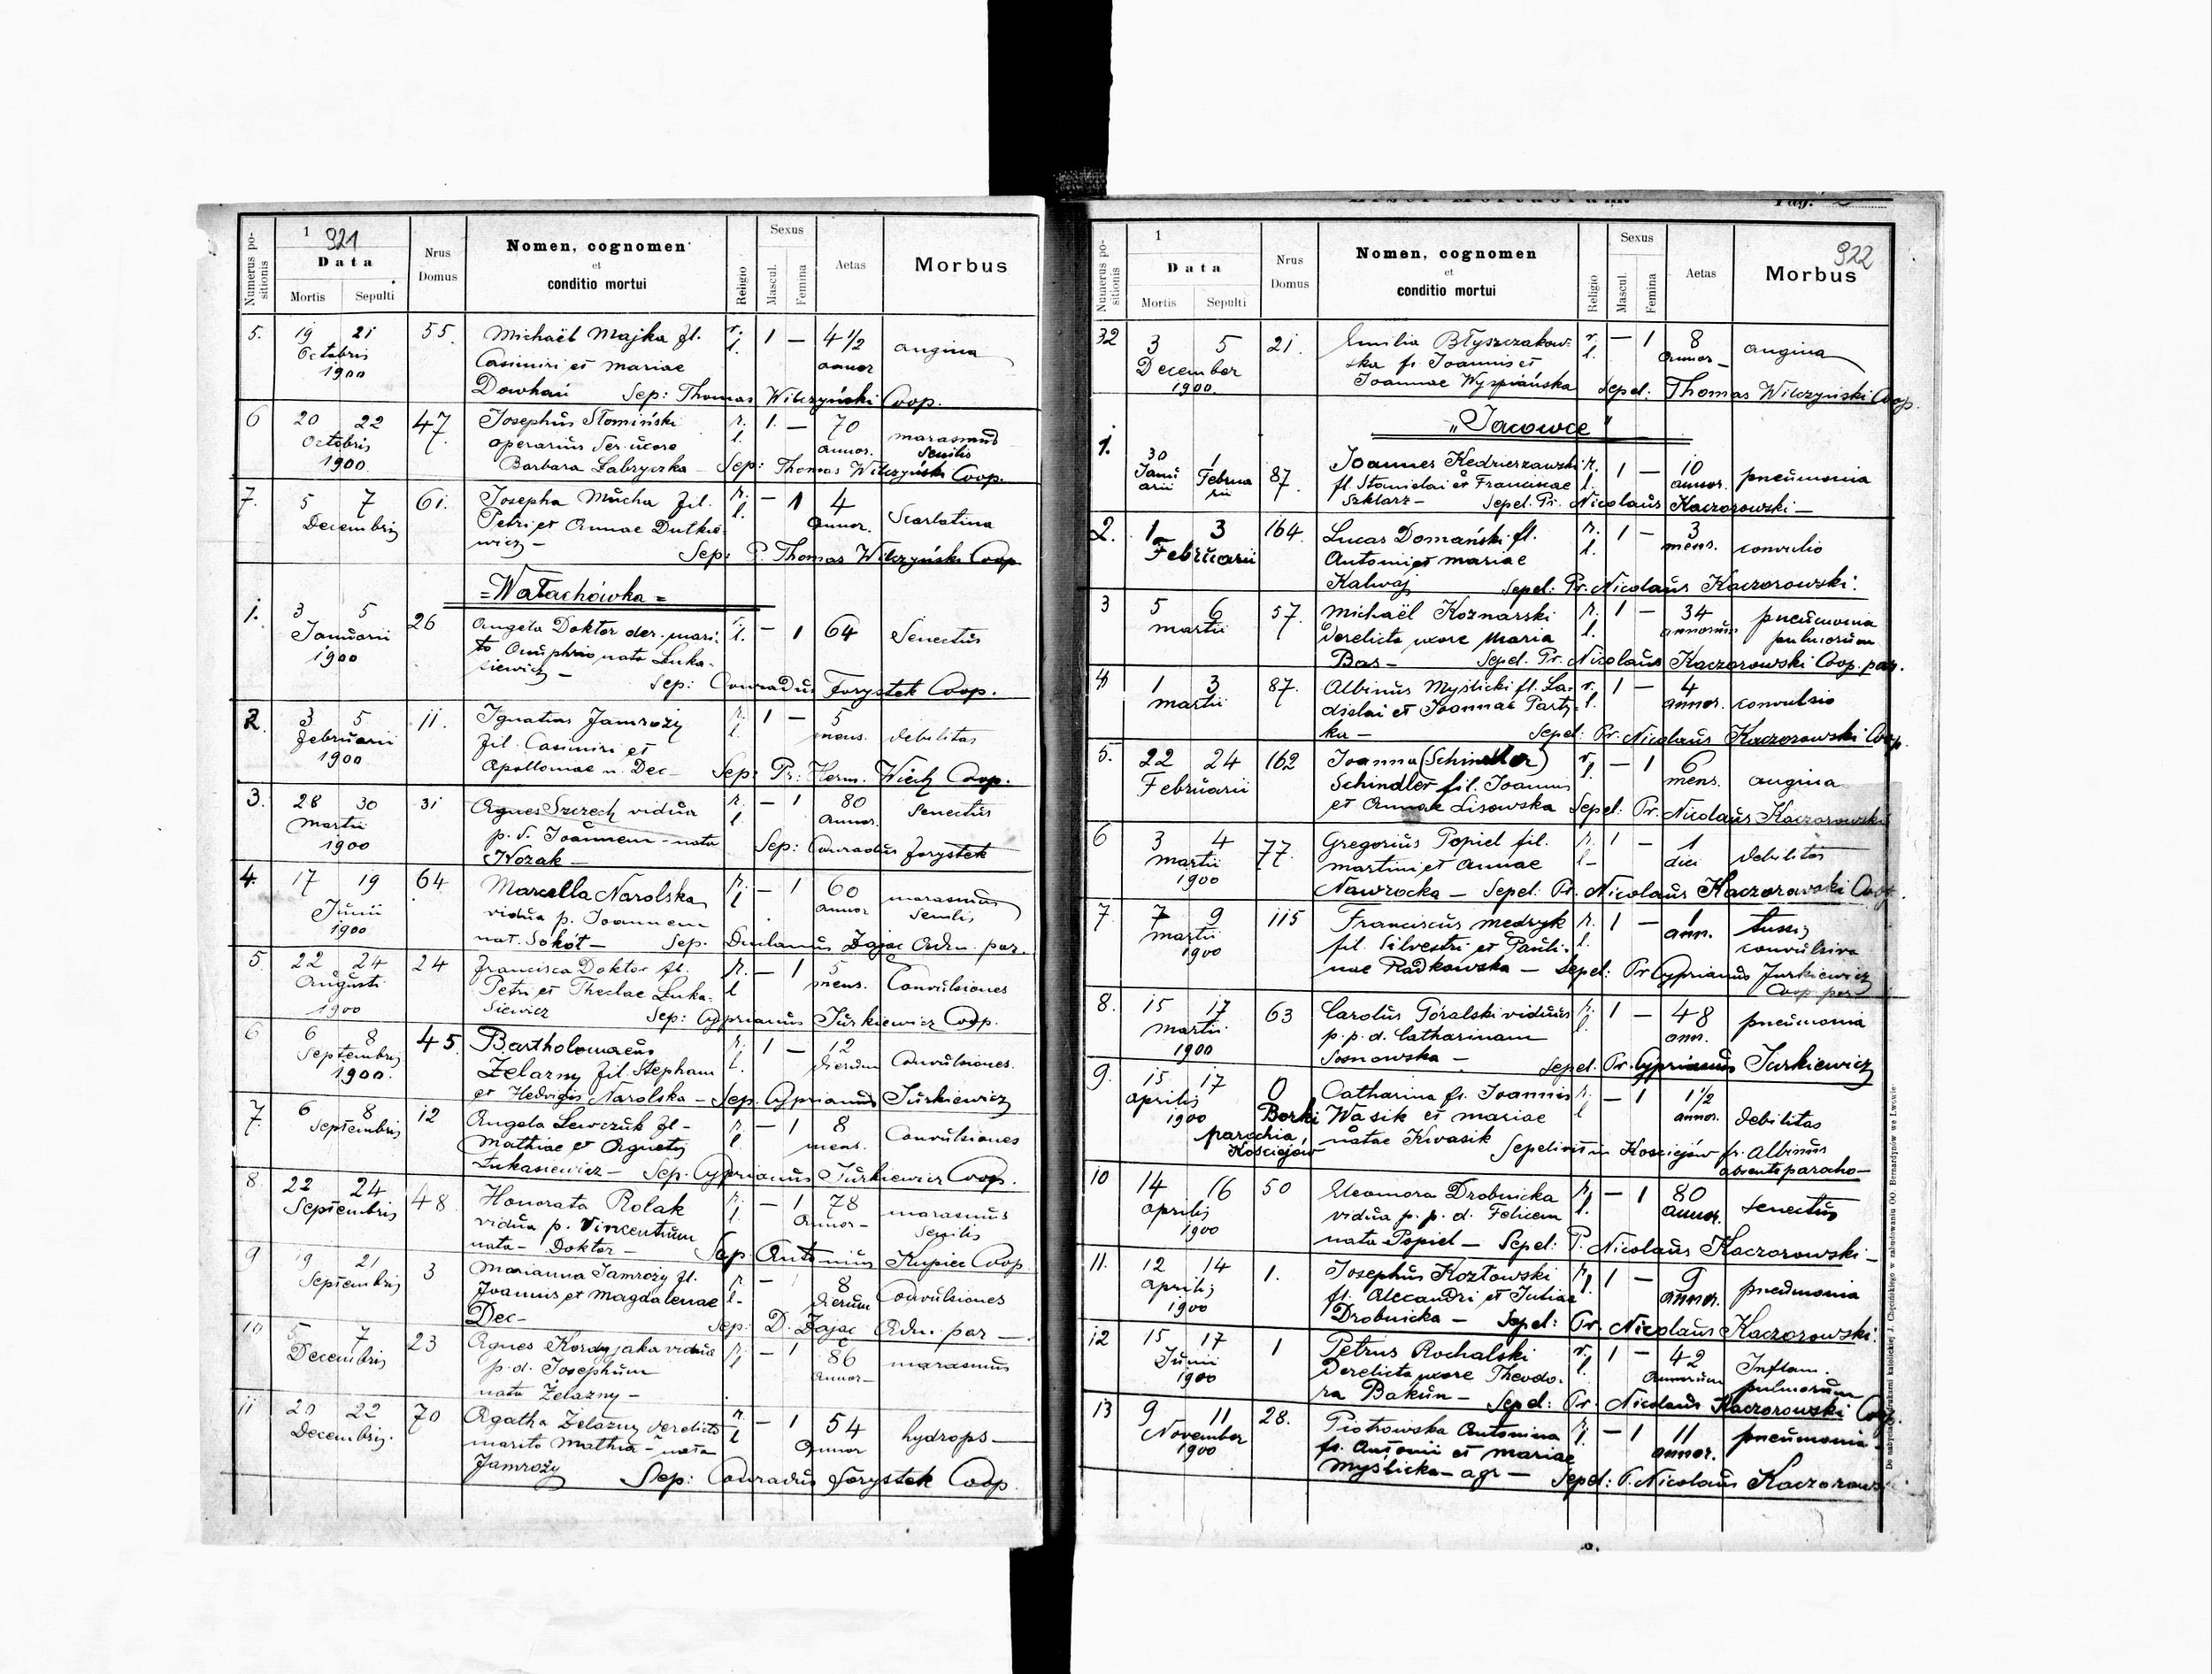 921
Numerus positionis
1
Data
Mortis Sepulti
Nrus Domus
Nomen, cognomen
et
conditio mortui
Religio
Sexus
Mascul. Femina
Aetas
Morbus
5. 19 21 55. Michaël Majka fil. r. 1 — 4 1/2 angina
Octobris Casimiri et Mariae l. annor
1900 Dowhań Sep: Thomas Wilczyński Coop.
6 20 22 47. Josephus Słomiński r. 1. — 70 marasmus
Octobris operarius der. uxore l. annor. senilis
1900. Barbara Łabryczka — Sep: Thomas Wilczyński Coop.
7. 5 7 61. Josepha Mucha fil. r. — 1 4 Scarlatina
Decembris Petri et Annae Dutkie- l. annor.
wicz — Sep: P. Thomas Wilczyński Coop
= Wałachówka =
1. 3 5 26 Angela Doktor der. mari- r. — 1 64 Senectus
Januarii to Onuphrio nata Luka- l.
1900 siewicz —
Sep: Conradus Forystek Coop.
2. 3 5 11. Ignatius Jamroży r. 1 — 5 debilitas
Februarii fil. Casimiri et l. mens.
1900 Apolloniae n. Dec — Sep: Pr: Herm. Wiech Coop.
3. 28 30 31 Agnes Szczech vidua r. — 1 80 Senectus
Martii p. d. Joannem — nata l. annor.
1900 Kozak — Sep: Conradus Forystek
4. 17 19 64 Marcella Narolska r. — 1 60 marasmus
Junii vidua p. Joannem l annor senilis
1900 nat. Sokół — Sep. Duclanus Zając Adm. par.
5. 22 24 24 Francisca Doktor fil. r. — 1 5 Convulsiones
Augusti Petri et Theclae Luka- l mens.
1900 siewicz Sep: Cyprianus Jurkiewicz Coop.
6 6 8 45. Bartholomaeus r. 1 — 12 Convulsiones.
Septembris Żelazny fil. Stephani l. dierum
1900. et Hedvigis Narolska — Sep. Cyprianus Jurkiewicz
7. 6 8 12 Angela Lewczuk fil — r. — 1 8 Convulsiones
Septembris Mathiae et Agnetis l. mens.
Łukasiewicz — Sep. Cyprianus Jurkiewicz Coop.
8. 22 24 48 Honorata Rolak r. — 1 78 marasmus
Septembris vidua p. Vincentium l. annor — senilis
nata — Doktor — Sep: Antonius Kupiec Coop
9 19 21 3 Marianna Jamroży fil. r. — 1 8 Convulsiones
Septembris Joannis et Magdalenae l — dierum
Dec — Sep: D. Zając Adm. par —
10 5 7 23 Agnes Kordyjaka vidua r. — 1 86 marasmus
Decembris p. d. Josephum l annor —
nata Żelazny —
11 20 22 70 Agatha Żelazny derelicto r. — 1 54 hydrops —
Decembris. marito Mathia — nata l annor
Jamroży Sep: Conradus Forystek Coop
Liber Mortuorum. Pag.
922
Numerus positionis
1
Data
Mortis Sepulti
Nrus Domus
Nomen, cognomen
et
conditio mortui
Religio
Sexus
Mascul. Femina
Aetas
Morbus
32 3 5 21. Emilia Błyszczakow- r. — 1 8 angina
December ska fi. Joannis et l. annor —
1900. Joannae Wyspiańska Sepel: Thomas Wilczyński Coop.
"Jacowce"
1. 30 1 87. Joannes Kedzierzawski r. 1 — 10 pneumonia
Januarii Februarii fl. Stanislai et Franciscae l. annor.
Szklarz — Sepel. Pr. Nicolaus Kaczorowski —
2. 1 3 164. Lucas Domański fl. r. 1 — 3 convulsio
Februarii Antonii et Mariae l. mens.
Kalwaj Sepel: Pr. Nicolaus Kaczorowski.
3 5 6 57. Michaël Koznarski r. 1 — 34 pneumonia
Martii derelicta uxore Maria l. annorum pulmorum
Bas — Sepel. Pr. Nicolaus Kaczorowski Coop. par.
4 1 3 87. Albinus Myślicki fl. La- r. 1 — 4 convulsio
Martii dislai et Joannae Party- l. annor.
ka — Sepel: Pr. Nicolaus Kaczorowski Coop.
5. 22 24 162 Joanna (Schindler) r. — 1 6 angina
Februarii Schindler fil. Joannis l. mens.
et Annae Lisowska Sepel: Pr. Nicolaus Kaczorowski
6 3 4 77. Gregorius Popiel fil. r. 1 — 1 debilitas
Martii Martini et Annae l — diei
1900 Nawrocka — Sepel: Pr. Nicolaus Kaczorowski Coop.
7 7 9 115 Franciscus Medryk r. 1 — 1 tussis
Martii fil. Silvestri et Pauli- l. ann. convulsiva
1900 nae Radkowska — Sepel: Pr Cyprianus Jurkiewicz
Coop par
8. 15 17 63 Carolus Góralski viduus r. 1 — 48 pneumonia
Martii p. p. d. Catharinam l. ann.
1900 Sosnowska — Sepel. Pr. Cyprianus Jurkiewicz
9. 15 17 0 Catharina fi. Joannis r. — 1 1 1/2 debilitas
Aprilis Borki Wasik et Mariae l annor.
1900 parochia natae Kwasik Sepelivit in Kościejów fr. Albinus
Kościejów absente parocho —
10 14 16 50 Eleonora Drobnicka r. — 1 80 Senectus
Aprilis vidua p. p. d. Felicem l. annor.
1900 nata Popiel — Sepel: P. Nicolaus Kaczorowski —
11. 12 14 1. Josephus Kozłowski r. 1 — 9 pneumonia
Aprilis fi. Alexandri et Juliae l. annor.
1900 Drobnicka — Sepel: Pr. Nicolaus Kaczorowski.
12 15 17 1 Petrus Rochalski r. 1 — 42 Inflam.
Junii derelicta uxore Theodo- l. annorum pulmorum
1900 ra Bakun — Sepel: Pr. Nicolaus Kaczorowski Coop.
13 9 11 28. Piotrowska Antonina r. — 1 11 pneumonia —
November fi. Antonii et Mariae l. annor.
1900 Myślicka — agr — Sepel: P. Nicolaus Kaczorowski